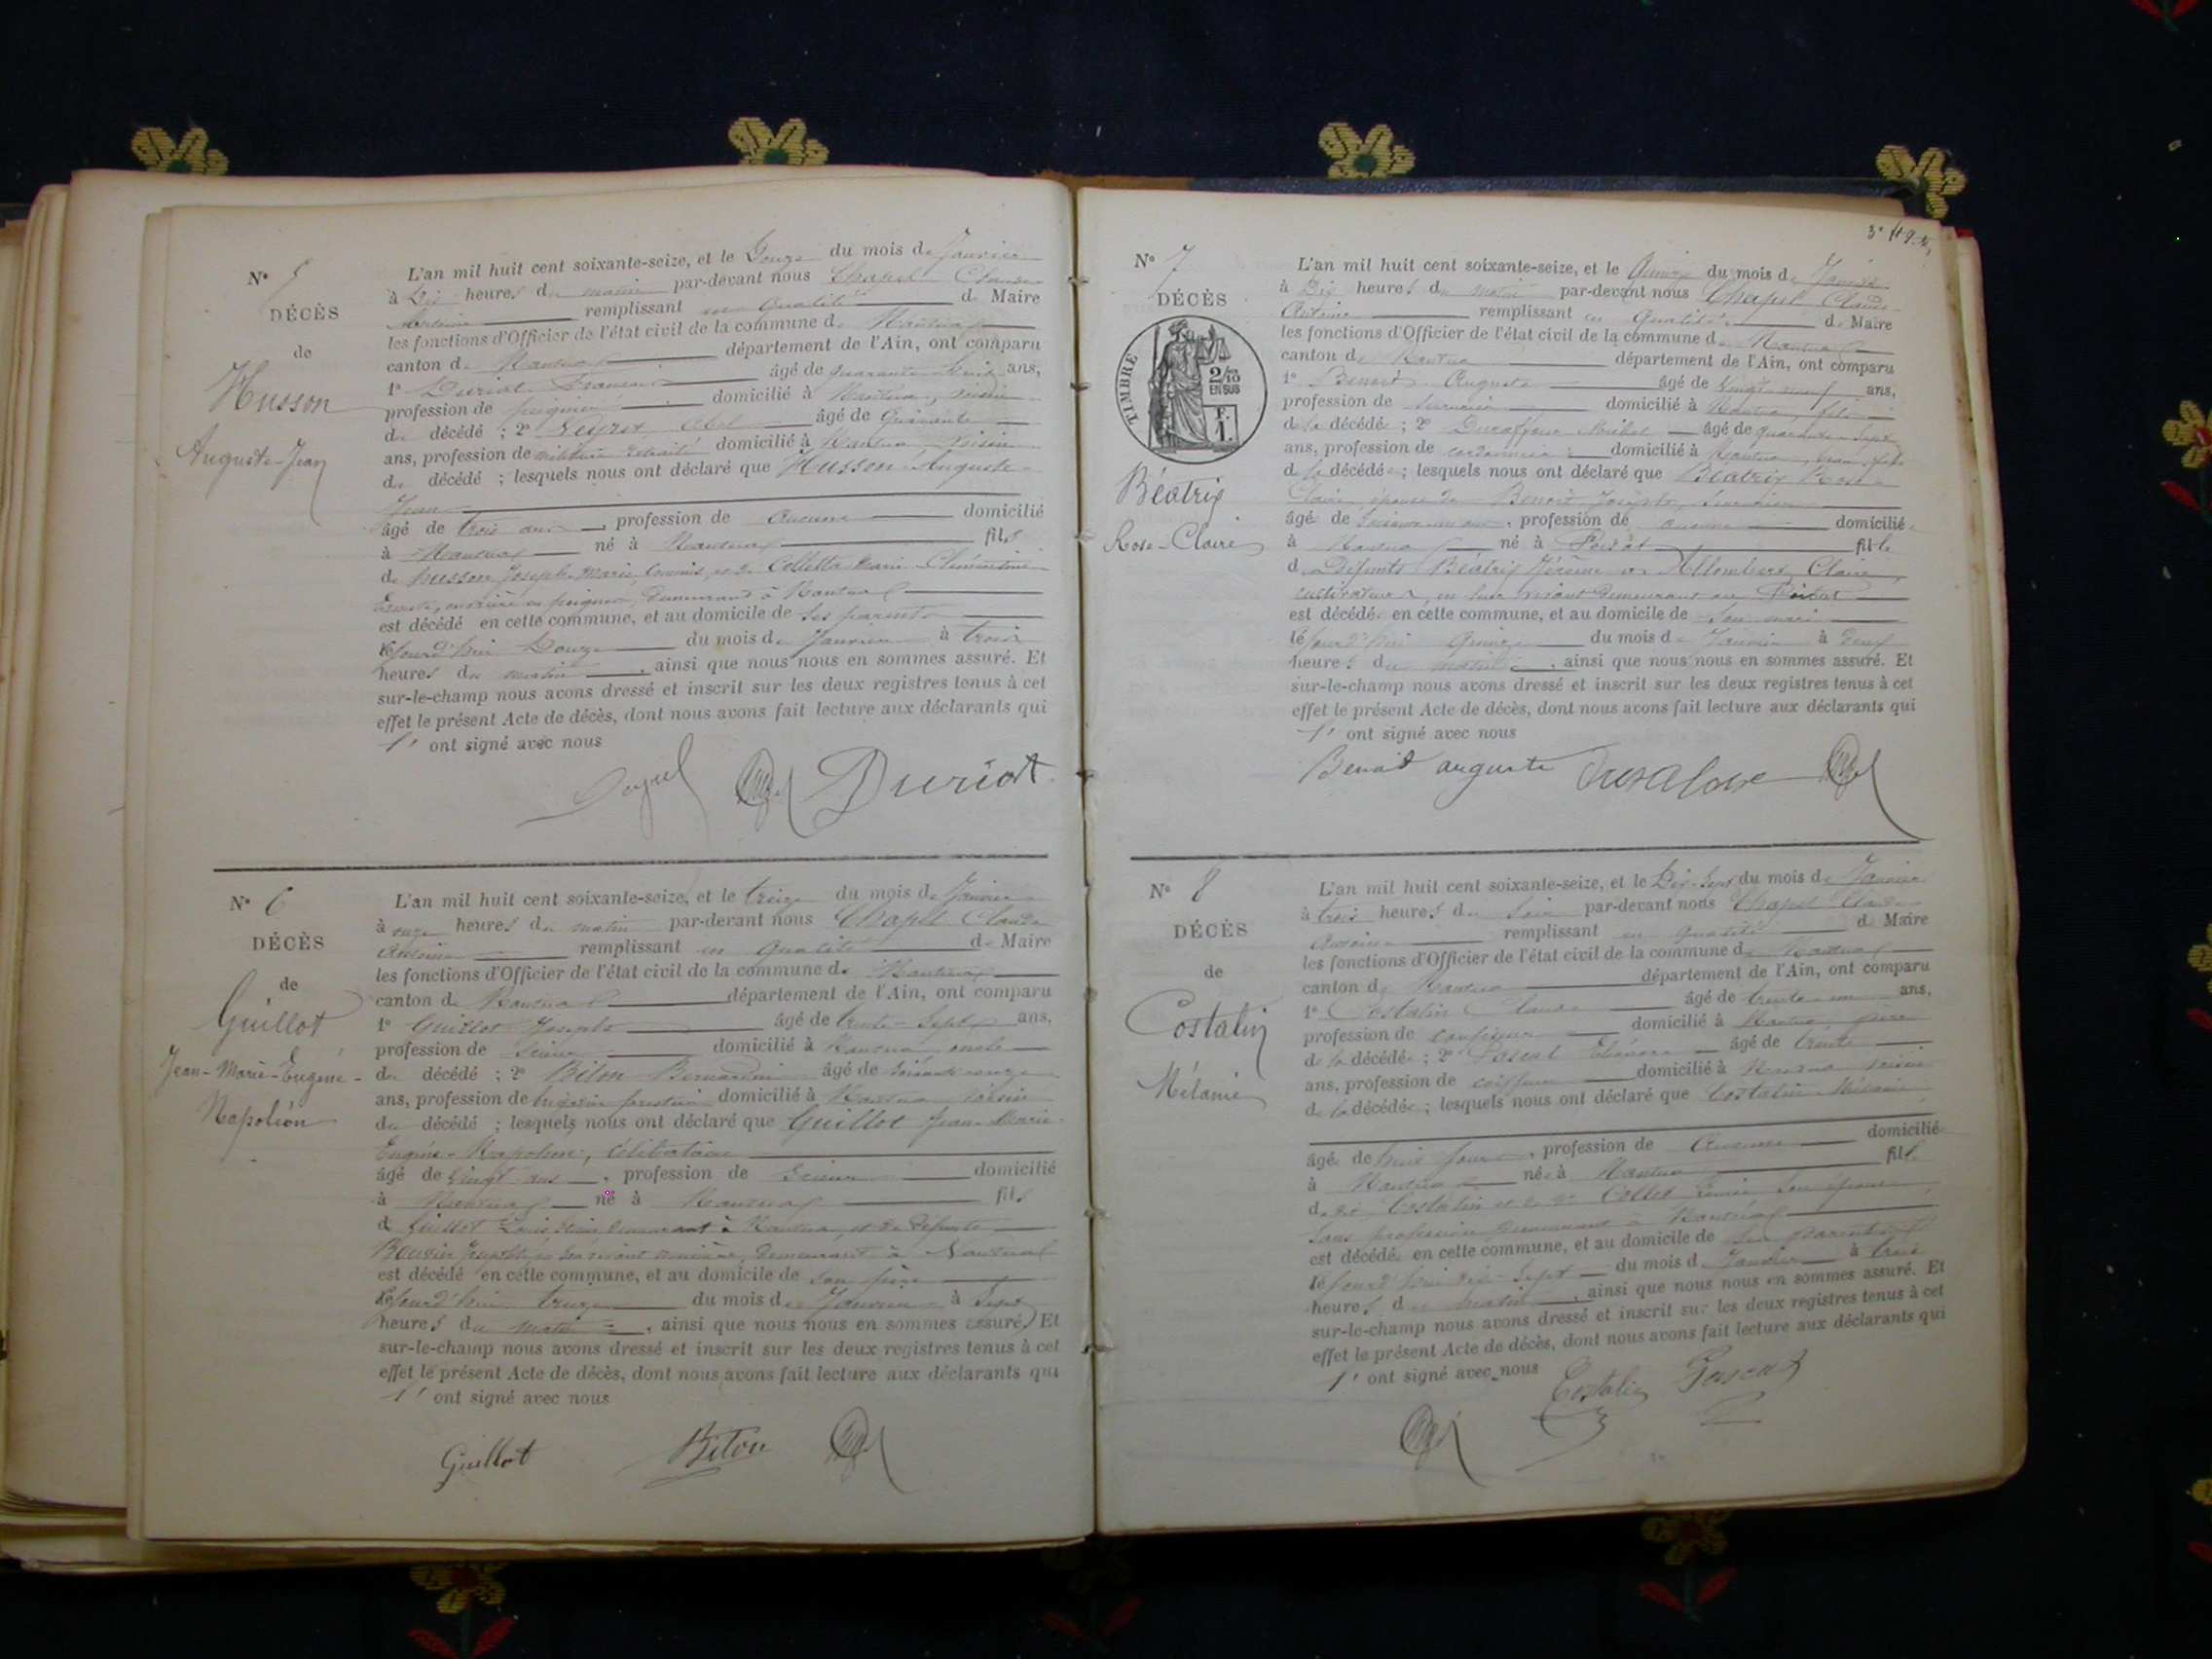 N° 5
DÉCÈS
de
Husson
Auguste-Jean
L'an mil huit cent soixante-seize, et le Douze du mois de Janvier
à Dix heures du matin par-devant nous Chapel Claude
Antoine remplissant en qualité de Maire
les fonctions d'Officier de l'état civil de la commune de Nantua
canton de Nantua département de l'Ain, ont comparu
1° Duriat François âgé de quarante ans,
profession de peigneur domicilié à Nantua, voisin
du décédé ; 2° Abel âgé de quarante
ans, profession de militaire retraité domicilié à Nantua voisin
du décédé ; lesquels nous ont déclaré que Husson Auguste-
Jean
âgé de trois ans, profession de aucune domicilié
à Nantua né à Nantua fils
de Husson Joseph-Marie, Commis, et de Colletta Marie-Clémentine
ouvrière en peignes, demeurant à Nantua
est décédé en cette commune, et au domicile de ses parents
lejourd'hui Douze du mois de Janvier à trois
heures du matin, ainsi que nous nous en sommes assuré. Et
sur-le-champ nous avons dressé et inscrit sur les deux registres tenus à cet
effet le présent Acte de décès, dont nous avons fait lecture aux déclarants qui
l' ont signé avec nous
Duriat
N° 6
DÉCÈS
de
Guillot
Jean-Marie-Eugène-
Napoléon
L'an mil huit cent soixante-seize, et le treize du mois de Janvier
à onze heures du matin par-devant nous Chapel Claude
Antoine remplissant en qualité de Maire
les fonctions d'Officier de l'état civil de la commune de Nantua
canton de Nantua département de l'Ain, ont comparu
1° Guillot Joseph âgé de trente-sept ans,
profession de scieur domicilié à Nantua oncle
du décédé ; 2° Biton Bernardin âgé de soixante onze
ans, profession de domicilié à Nantua voisin
du décédé ; lesquels nous ont déclaré que Guillot Jean-Marie-
Eugène-Napoléon, célibataire
âgé de vingt ans, profession de scieur domicilié
à Nantua né à Nantua fils
de Guillot Louis demeurant à Nantua, et de défunte
en son vivant demeurant à Nantua
est décédé en cette commune, et au domicile de son père
lejourd'hui treize du mois de Janvier à sept
heures du matin, ainsi que nous nous en sommes assuré. Et
sur-le-champ nous avons dressé et inscrit sur les deux registres tenus à cet
effet le présent Acte de décès, dont nous avons fait lecture aux déclarants qui
l' ont signé avec nous
Guillot Biton
N° 7
DÉCÈS
TIMBRE
2/10
EN SUS
F.
1.
Béatrix
Rose-Claire
L'an mil huit cent soixante-seize, et le Quinze du mois de Janvier
à Dix heures du matin par-devant nous Chapel Claude
Antoine remplissant en qualité de Maire
les fonctions d'Officier de l'état civil de la commune de Nantua
canton de Nantua département de l'Ain, ont comparu
1° Benoit Auguste âgé de vingt-neuf ans,
profession de serrurier domicilié à Nantua, fils
de la décédée ; 2° Michel âgé de quarante-sept
ans, profession de cordonnier domicilié à Nantua,
de la décédée ; lesquels nous ont déclaré que Béatrix Rose-
Claire épouse de Benoit Joseph, serrurier
âgée de soixante un ans, profession de aucune domiciliée
à Nantua née à Poizat fille
de Défunts Béatrix Jérôme et Allombert Claire,
cultivateurs, en leur vivant demeurant au Poizat
est décédée en cette commune, et au domicile de son mari
lejourd'hui Quinze du mois de Janvier à deux
heures du matin, ainsi que nous nous en sommes assuré. Et
sur-le-champ nous avons dressé et inscrit sur les deux registres tenus à cet
effet le présent Acte de décès, dont nous avons fait lecture aux déclarants qui
l' ont signé avec nous
Benoit auguste
N° 8
DÉCÈS
de
Costalin
Mélanie
L'an mil huit cent soixante-seize, et le Dix-sept du mois de Janvier
à trois heures du soir par-devant nous Chapel Claude
Antoine remplissant en qualité de Maire
les fonctions d'Officier de l'état civil de la commune de Nantua
canton de Nantua département de l'Ain, ont comparu
1° Costalin Claude âgé de trente-un ans,
profession de domicilié à Nantua père
de la décédée ; 2° Pascal âgé de trente
ans, profession de coiffeur domicilié à Nantua voisin
de la décédée ; lesquels nous ont déclaré que Costalin Mélanie
âgée de huit jours, profession de Aucune domiciliée
à Nantua née à Nantua fille
de dit Costalin et de Collet son épouse,
sans profession demeurant à Nantua
est décédée en cette commune, et au domicile de ses parents
lejourd'hui dix-sept du mois de Janvier à trois
heures du matin, ainsi que nous nous en sommes assuré. Et
sur-le-champ nous avons dressé et inscrit sur les deux registres tenus à cet
effet le présent Acte de décès, dont nous avons fait lecture aux déclarants qui
l' ont signé avec nous
Costalin Pascal